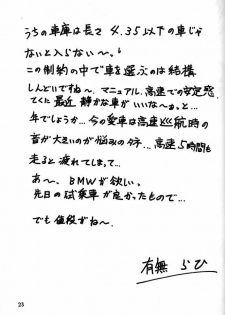 うちの車庫は長さ 4.35以下の車じゃ
ないと入らない〜。
この制約の中で車を選ぶのは結構
しんどいですね〜、マニュアル、高速での安定感、
てくに最近 静かな車がいいな〜ぁっと…
年でしょうか…今の愛車は高速巡航時の
音が大きいのが悩みのタネ…高速5時間も
走ると疲れてしまって…
あ〜、BMWが欲しい。
先日の試乗車が良かったもので…
でも値段がね〜
有無 らひ
25